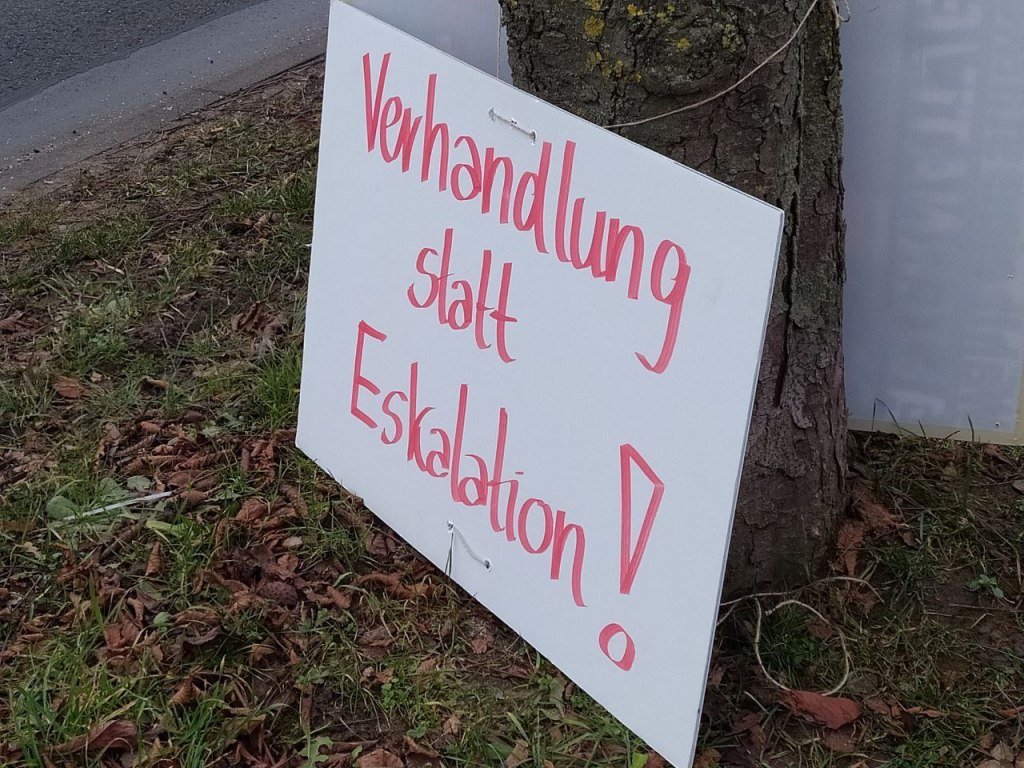 Verhandlung
statt
Eskalation!